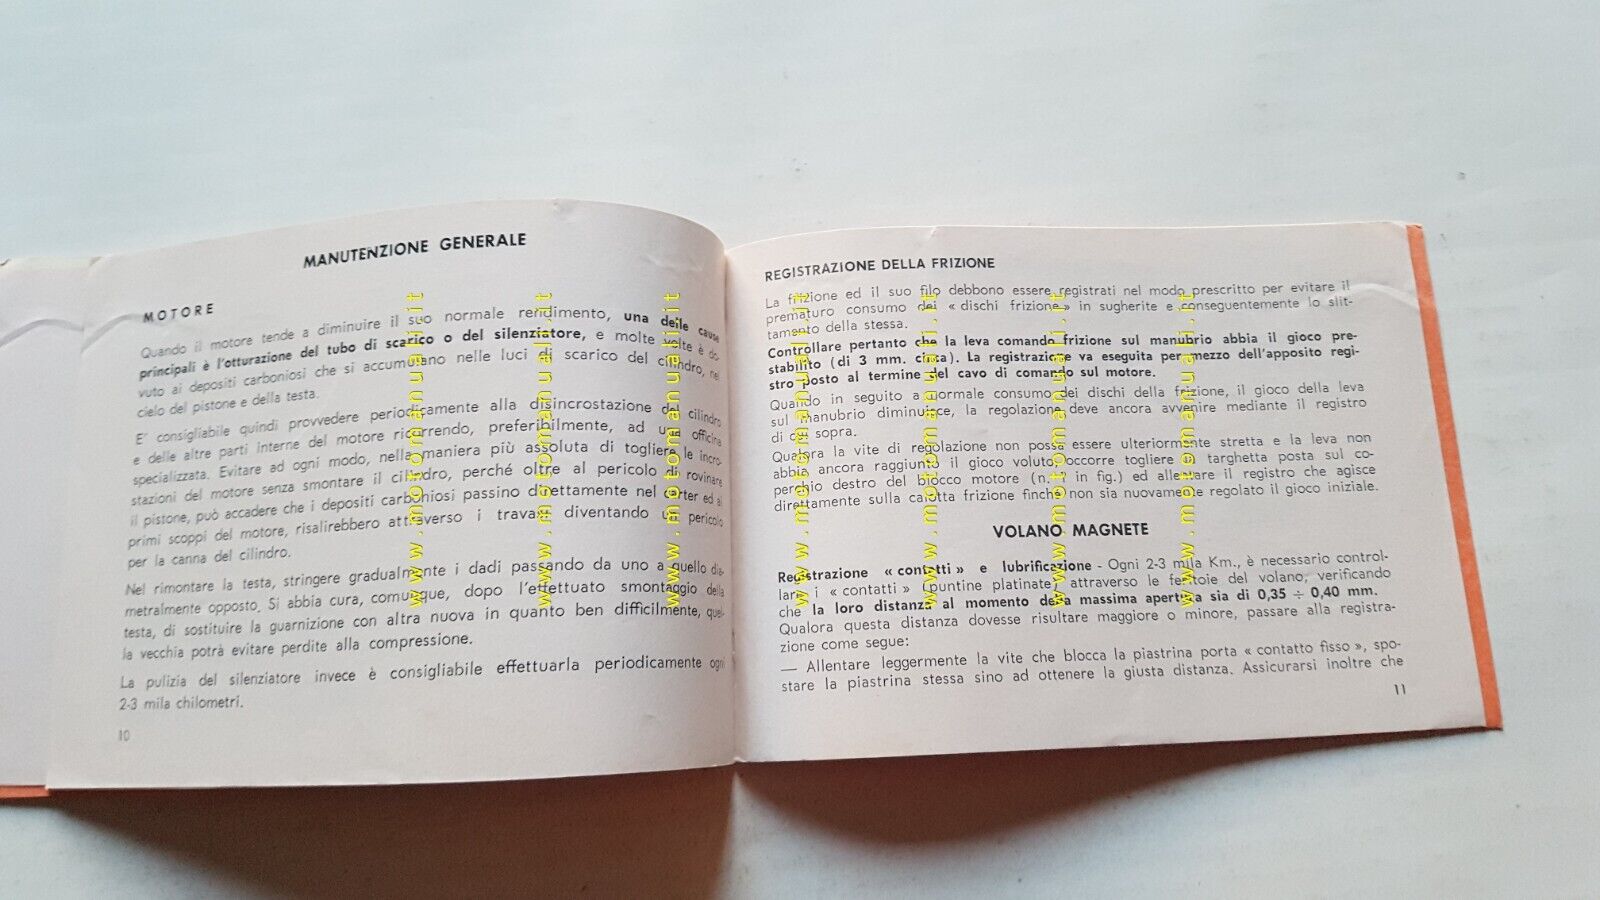 MANUTENZIONE GENERALE
MOTORE
Quando il motore tende a diminuire il suo normale rendimento, una delle cause
principali è l'otturazione del tubo di scarico o del silenziatore, e molte volte è do-
vuto ai depositi carboniosi che si accumulano nelle luci di scarico del cilindro, nel
cielo del pistone e della testa.
E' consigliabile quindi provvedere periodicamente alla disincrostazione del cilindro
e delle altre parti interne del motore ricorrendo, preferibilmente, ad una officina
specializzata. Evitare ad ogni modo, nella maniera più assoluta di togliere le incro-
stazioni del motore senza smontare il cilindro, perché oltre al pericolo di rovinare
il pistone, può accadere che i depositi carboniosi passino direttamente nel carter ed ai
primi scoppi del motore, risalirebbero attraverso i travasi diventando un pericolo
per la canna del cilindro.
Nel rimontare la testa, stringere gradualmente i dadi passando da uno a quello dia-
metralmente opposto. Si abbia cura, comunque, dopo l'effettuato smontaggio della
testa, di sostituire la guarnizione con altra nuova in quanto ben difficilmente, quel-
la vecchia potrà evitare perdite alla compressione.
La pulizia del silenziatore invece è consigliabile effettuarla periodicamente ogni
2-3 mila chilometri.
10
REGISTRAZIONE DELLA FRIZIONE
La frizione ed il suo filo debbono essere registrati nel modo prescritto per evitare il
prematuro consumo dei « dischi frizione » in sugherite e conseguentemente lo slit-
tamento della stessa.
Controllare pertanto che la leva comando frizione sul manubrio abbia il gioco pre-
stabilito (di 3 mm. circa). La registrazione va eseguita per mezzo dell'apposito regi-
stro posto al termine del cavo di comando sul motore.
Quando in seguito a normale consumo dei dischi della frizione, il gioco della leva
sul manubrio diminuisce, la regolazione deve ancora avvenire mediante il registro
di cui sopra.
Qualora la vite di regolazione non possa essere ulteriormente stretta e la leva non
abbia ancora raggiunto il gioco voluto, occorre togliere la targhetta posta sul co-
perchio destro del blocco motore (n. in fig.) ed allentare il registro che agisce
direttamente sulla calotta frizione finché non sia nuovamente regolato il gioco iniziale.
VOLANO MAGNETE
Registrazione « contatti » e lubrificazione - Ogni 2-3 mila Km., è necessario control-
lare i « contatti » (puntine platinate) attraverso le feritoie del volano, verificando
che la loro distanza al momento della massima apertura sia di 0,35 ÷ 0,40 mm.
Qualora questa distanza dovesse risultare maggiore o minore, passare alla registra-
zione come segue:
— Allentare leggermente la vite che blocca la piastrina porta « contatto fisso », spo-
stare la piastrina stessa sino ad ottenere la giusta distanza. Assicurarsi inoltre che
11
www.motomanuali.it
www.motomanuali.it
www.motomanuali.it
www.motomanuali.it
www.motomanuali.it
www.motomanuali.it
www.motomanuali.it